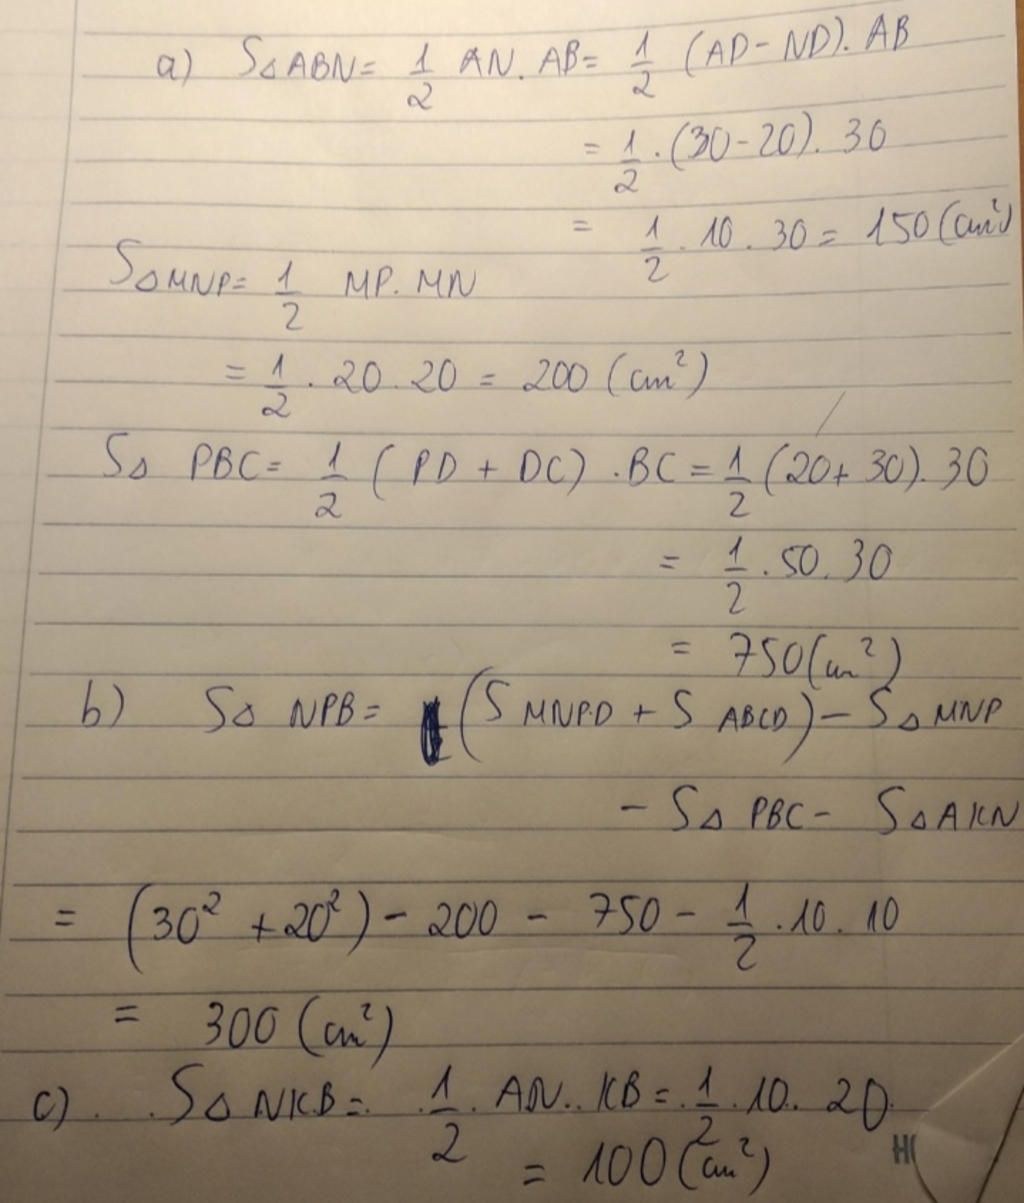 a) S△ABN = 1/2 AN. AB = 1/2 (AD - ND). AB
= 1/2 . (30 - 20). 30
= 1/2 . 10 . 30 = 150 (cm²)
S△MNP = 1/2 MP. MN
= 1/2 . 20 . 20 = 200 (cm²)
S△ PBC = 1/2 ( PD + DC) . BC = 1/2 (20 + 30). 30
= 1/2 . 50. 30
= 750 (cm²)
b) S△ NPB = (S MNPD + S ABCD) - S△ MNP
- S△ PBC - S△AKN
= (30² + 20²) - 200 - 750 - 1/2 . 10 . 10
= 300 (cm²)
c) S△ NKB = 1/2 . AN . KB = 1/2 . 10 . 20
= 100 (cm²)